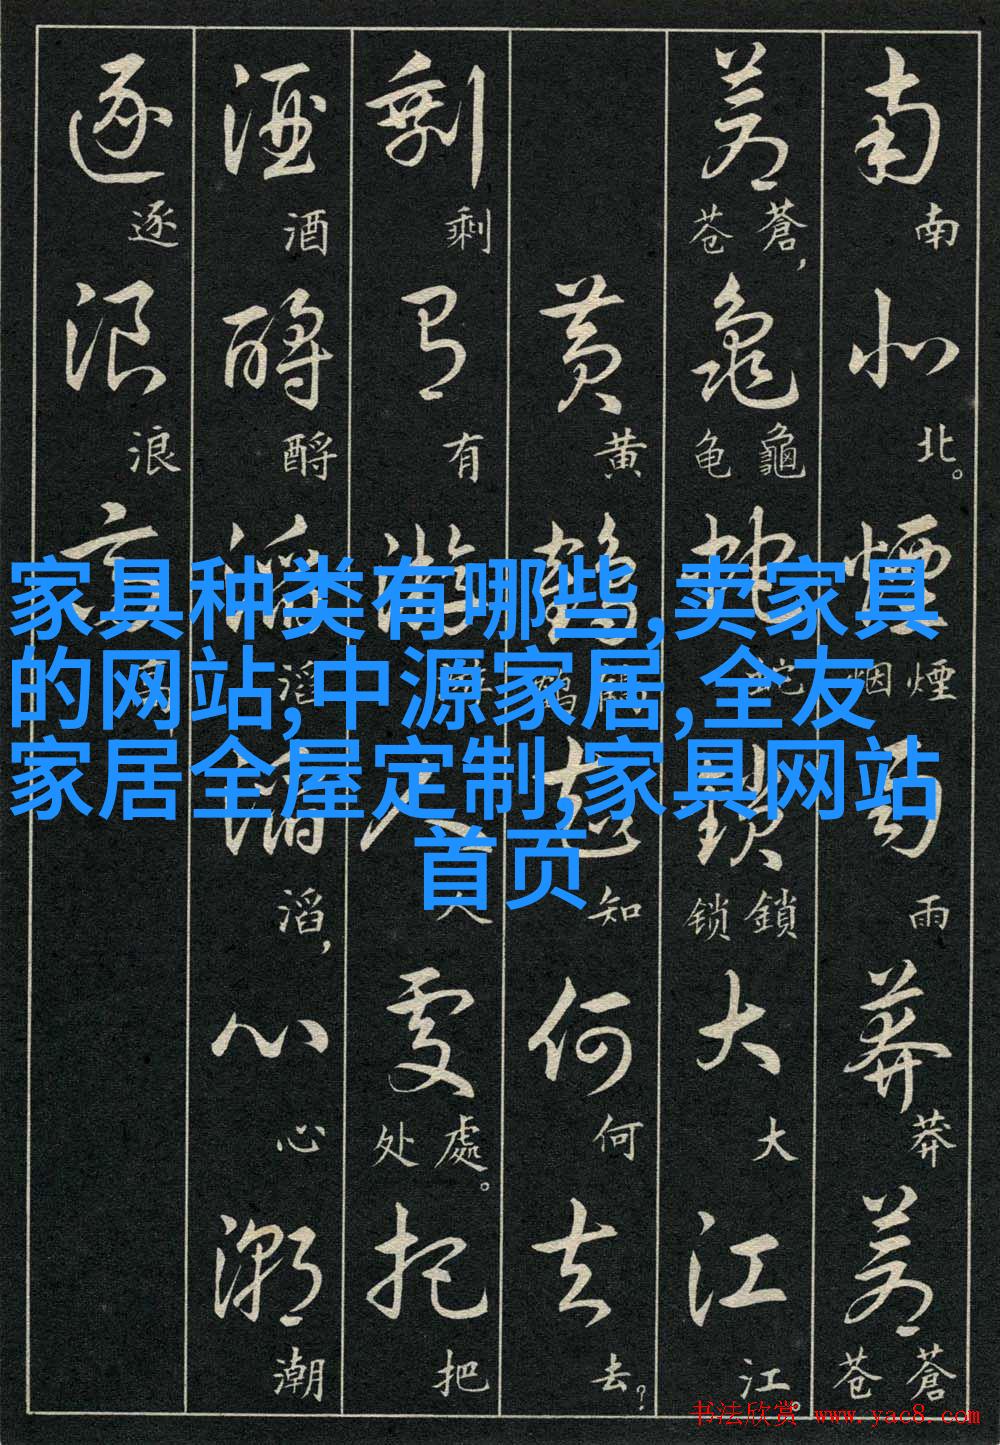 南北煙雨莽蒼
南北。烟煙雨莽苍蒼
蒼龜蛇鎖大江
苍蒼,龟龜蛇锁鎖大江。
黄鶴知何去
黄鹤鶴知何去?
剩有游人處把
剩有游人处處。把
酒酹滔滔心潮
酒酹滔滔,心潮
逐浪高
逐浪高
家具种类有哪些,卖家具
的网站,中源家居,全友
家居全屋定制,家具网站
首页
书法欣赏 www.yac8.com